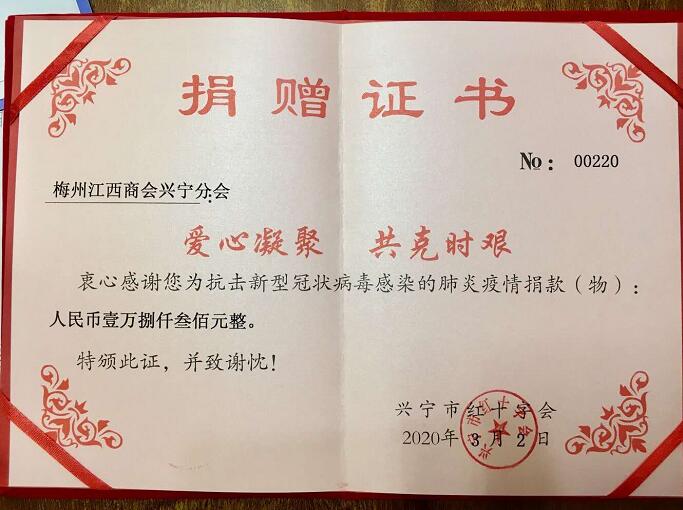 捐赠证书
No: 00220
梅州江西商会兴宁分会:
爱心凝聚 共克时艰
衷心感谢您为抗击新型冠状病毒感染的肺炎疫情捐款(物):
人民币壹万捌仟叁佰元整。
特颁此证,并致谢忱!
兴宁市红十字会
2020年3月2日
兴宁市红十字会